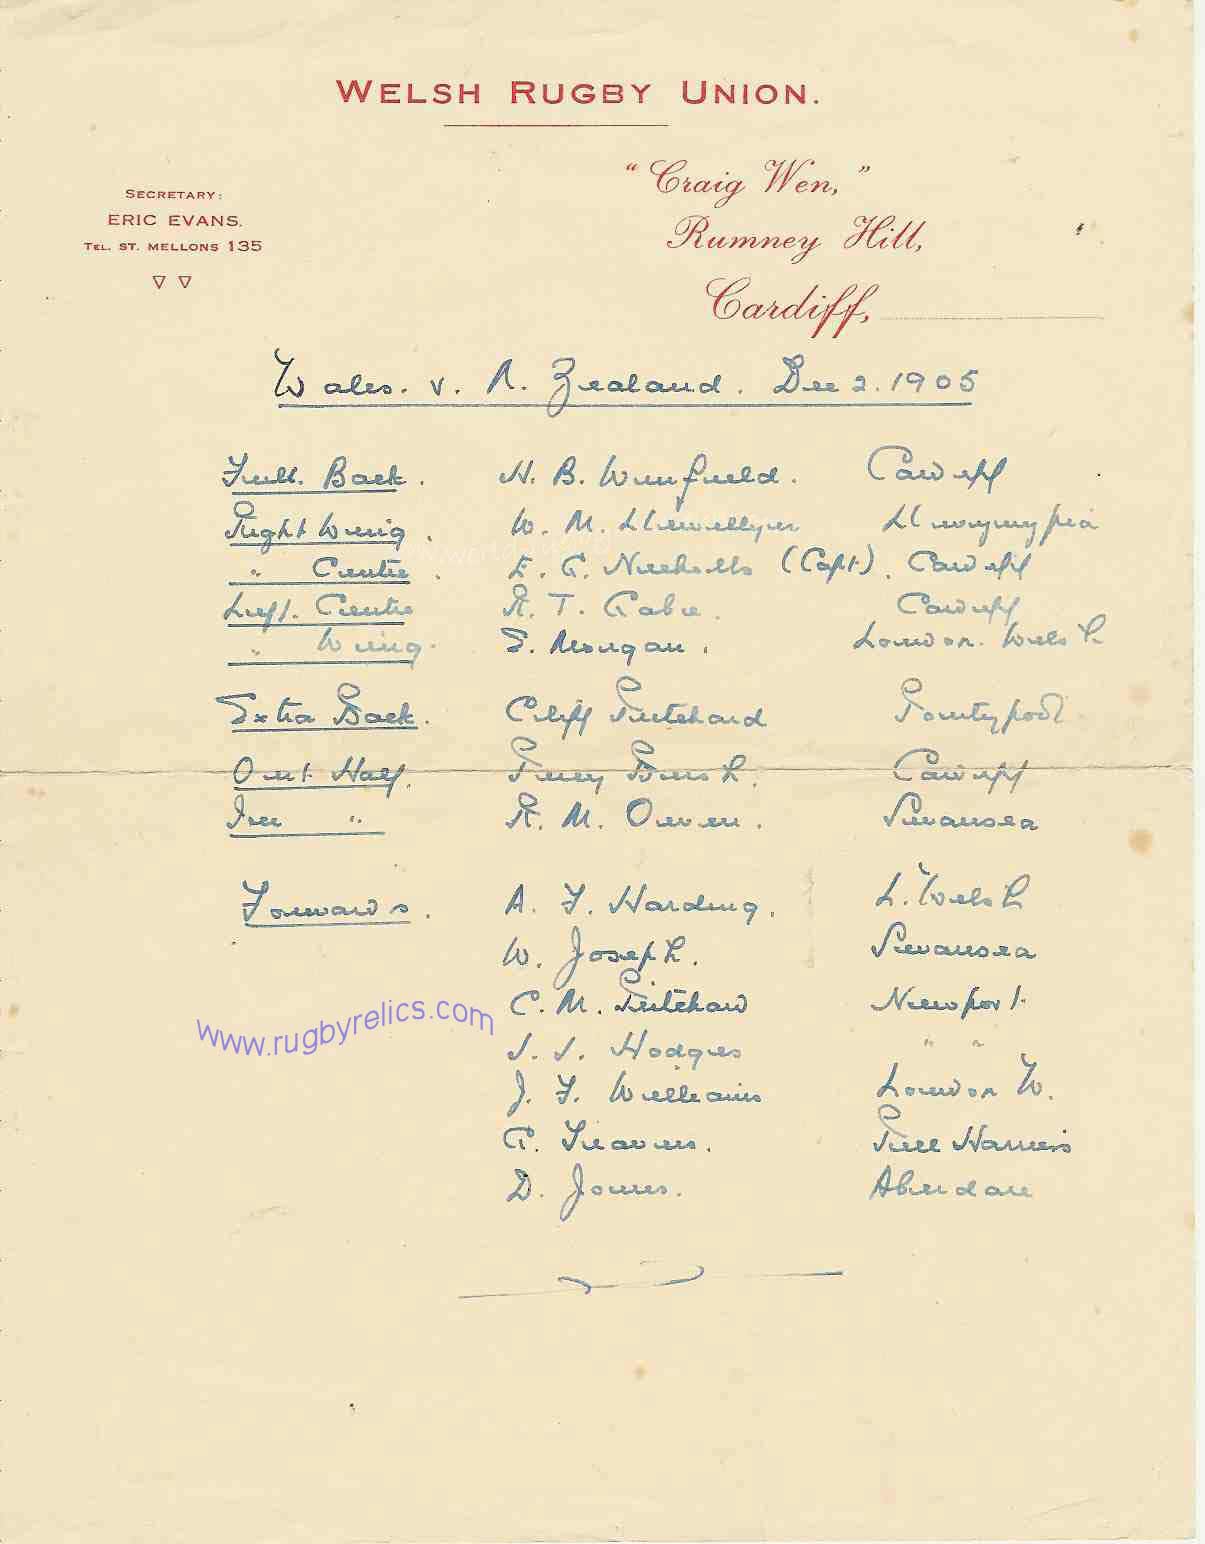 WELSH RUGBY UNION.
SECRETARY:
ERIC EVANS.
TEL. ST. MELLONS 135
"Craig Wen,"
Rumney Hill,
Cardiff,
Wales. v. N. Zealand. Dec 2. 1905
Full. Back. H. B. Winfield. Cardiff
Right Wing. W. M. Llewellyn Llwynypia
" Centre. E. G. Nicholls (Capt). Cardiff
Left. Centre R. T. Gabe. Cardiff
" Wing. T. Morgan. London. Welsh
Extra Back. Cliff Pritchard Pontypool
Out Half. Percy Bush. Cardiff
Ins " R. M. Owen. Swansea
Forwards. A. F. Harding. L. Welsh
W. Joseph. Swansea
C. M. Pritchard Newport.
J. J. Hodges " "
J. F. Williams London W.
G. Travers. Pill Harriers
D. Jones. Aberdare
www.rugbyrelics.com